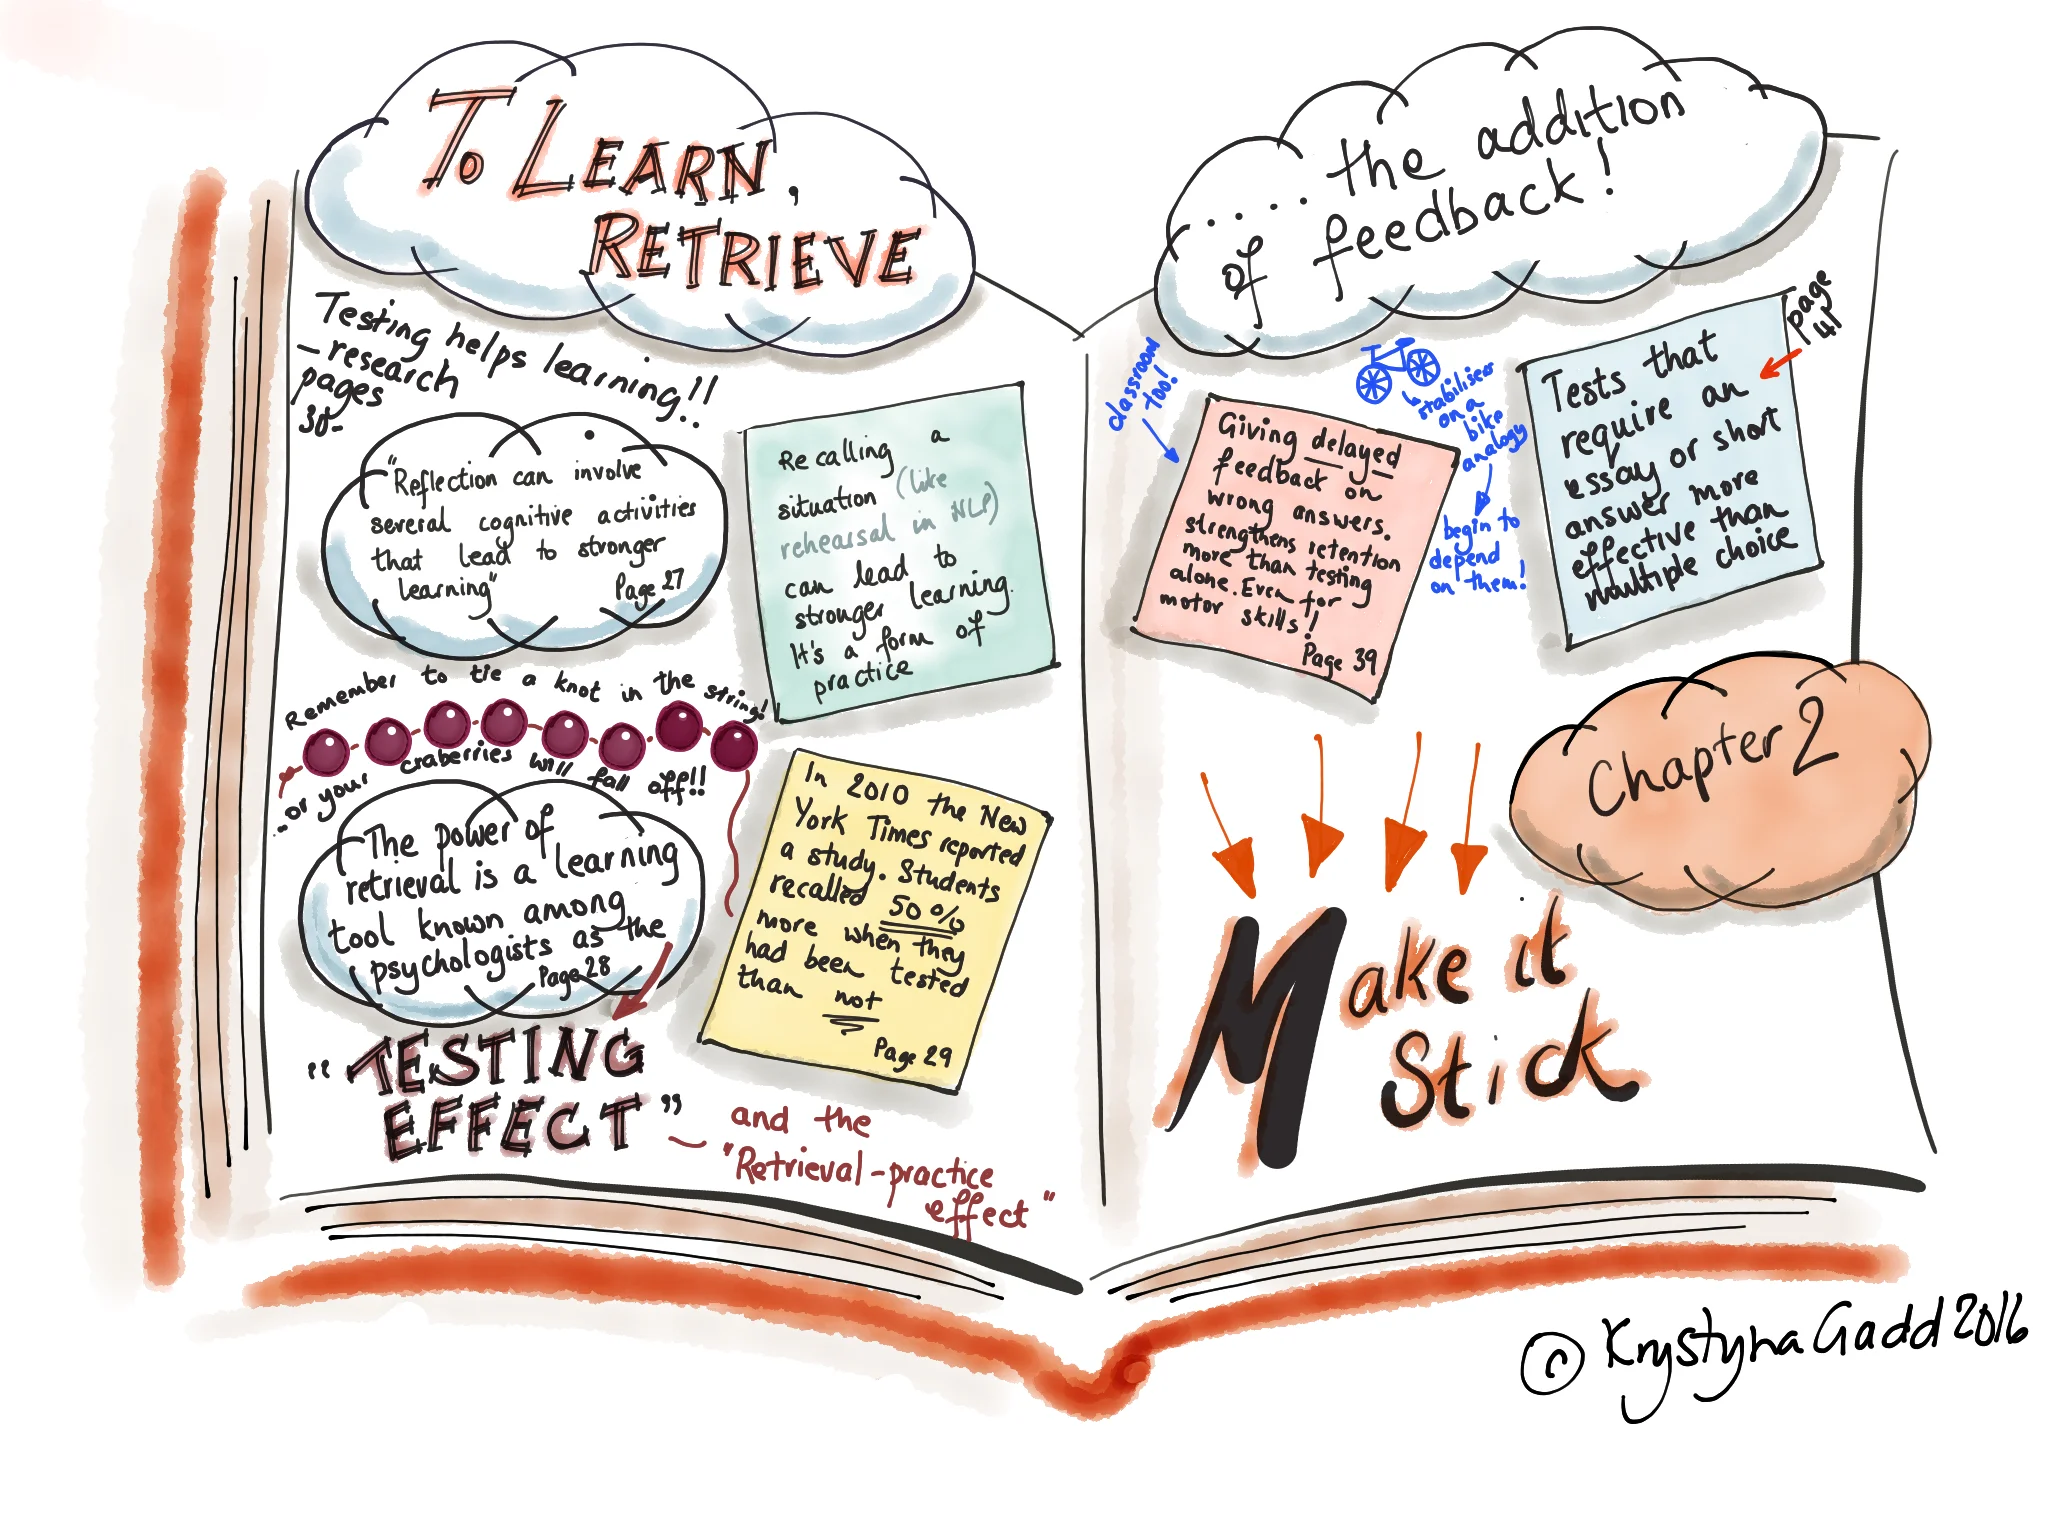 To LEARN,
RETRIEVE
Testing helps learning!!
- research
pages
30-
"Reflection can involve
several cognitive activities
that lead to stronger
learning"
Page 27
Recalling a
situation (like
rehearsal in NLP)
can lead to
stronger learning.
It's a form of
practice
Remember to tie a knot in the string!
..or your craberries will fall off!!
The power of
retrieval is a learning
tool known among
psychologists as the
Page 28
"TESTING
EFFECT"
and the
"Retrieval-practice
effect"
In 2010 the New
York Times reported
a study. Students
recalled 50%
more when they
had been tested
than not
Page 29
.....the addition
of feedback!
classroom
too!
Giving delayed
feedback on
wrong answers.
strengthens retention
more than testing
alone. Even for
motor skills!
Page 39
stabilisers
on a
bike
analogy
begin to
depend
on them!
page
41
Tests that
require an
essay or short
answer more
effective than
multiple choice
Chapter 2
Make it
Stick
© Krystyna Gadd 2016